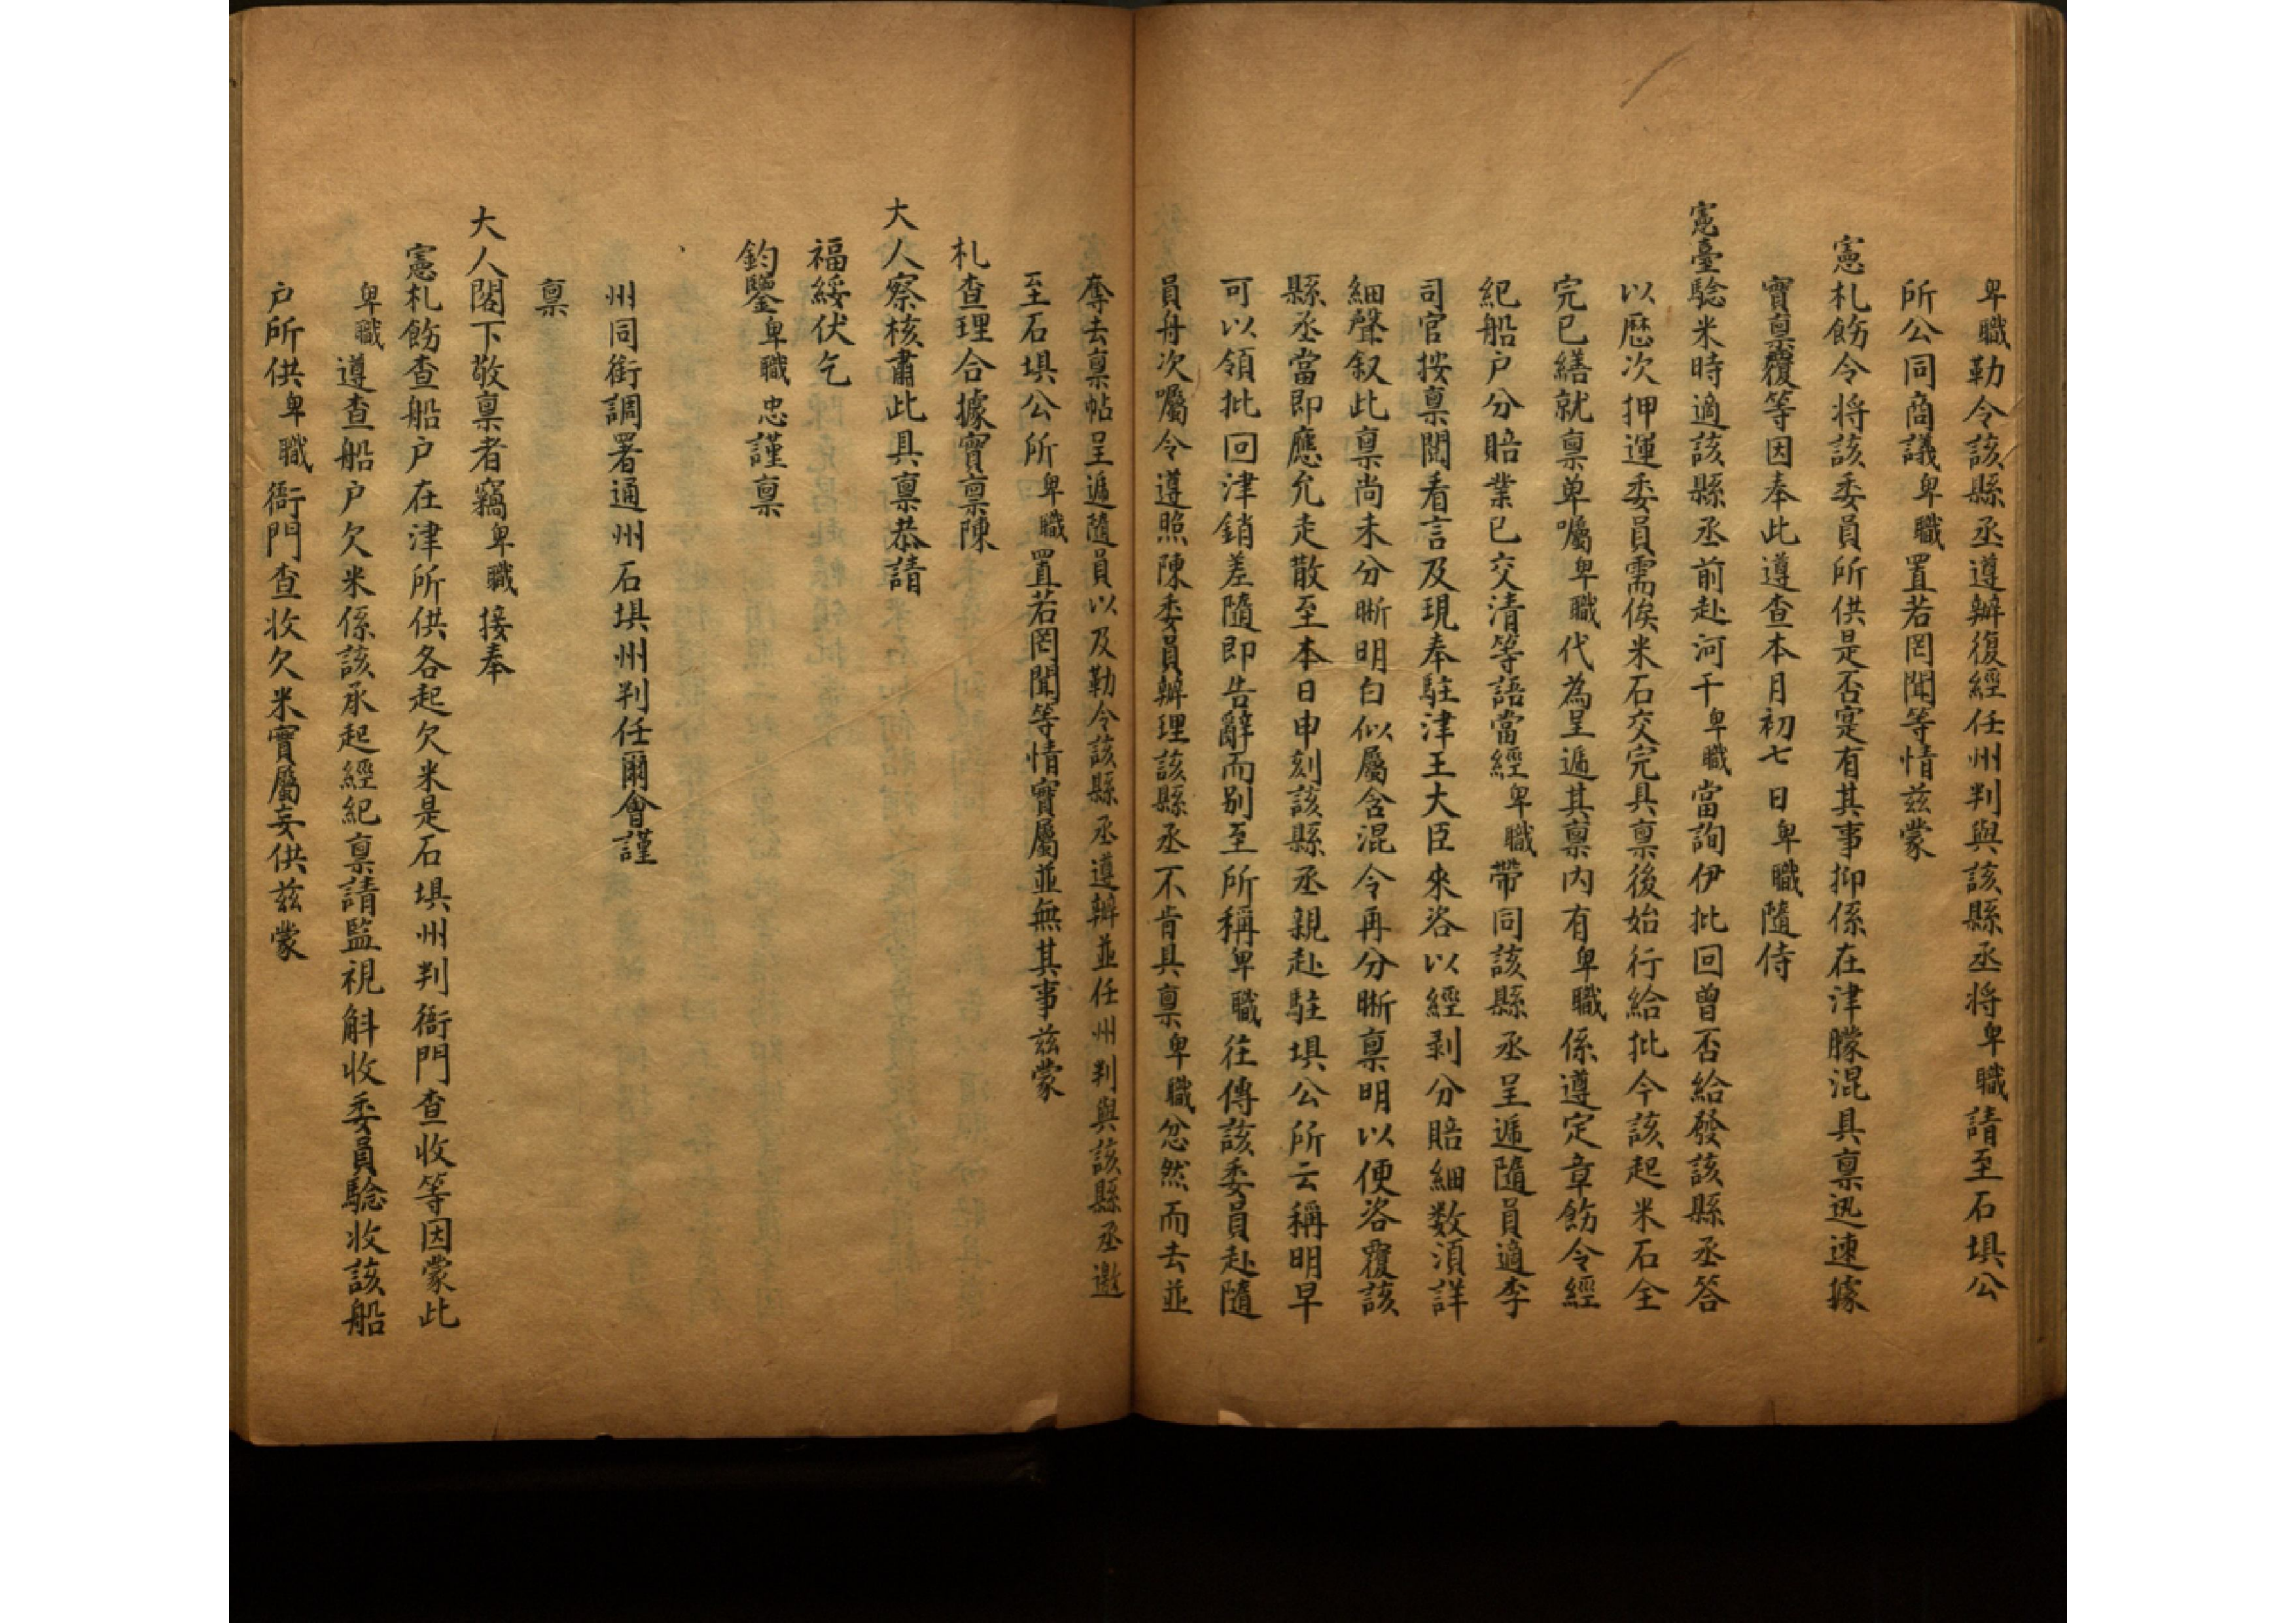 卑職勒令該縣丞遵辦復經任州判與該縣丞将卑職請至石垻公
所公同商議卑職置若罔聞等情兹蒙
憲札飭令将該委員所供是否寔有其事抑係在津朦混具禀迅速據
實禀覆等因奉此遵查本月初七日卑職隨侍
憲臺驗米時適該縣丞前赴河干卑職當詢伊批回曾否給發該縣丞答
以歷次押運委員需俟米石交完具禀後始行給批今該起米石全
完已繕就禀单囑卑職代為呈遞其禀内有卑職係遵定章飭令經
紀船户分賠業已交清等語當經卑職帶同該縣丞呈遞隨員適李
司官按禀閲看言及現奉駐津王大臣來咨以經剥分賠細数湏詳
細聲叙此禀尚未分晰明白似屬含混令再分晰禀明以便咨覆該
縣丞當即應允走散至本日申刻該縣丞親赴駐垻公所云稱明早
可以領批回津銷差隨即告辭而别至所稱卑職往傳該委員赴隨
員舟次囑令遵照陳委員辦理該縣丞不肯具禀卑職忿然而去並
奪去禀帖呈遞隨員以及勒令該縣丞遵辦並任州判與該縣丞邀
至石垻公所卑職置若罔聞等情實屬並無其事兹蒙
札查理合據實禀陳
大人察核肅此具禀恭請
福綏伏乞
鈞鑒卑職忠謹禀
州同銜調署通州石垻州判任爾會謹
禀
大人閣下敬禀者竊卑職接奉
憲札飭查船户在津所供各起欠米是石垻州判衙門查收等因蒙此
卑職遵查船户欠米係該承起經紀禀請監視斛收委員驗收該船
户所供卑職衙門查收欠米實屬妄供兹蒙